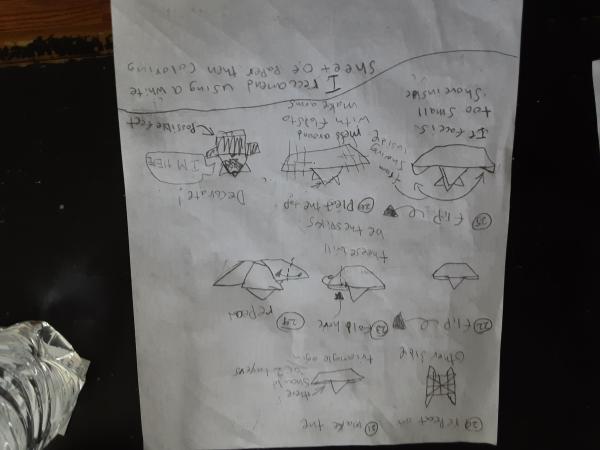 20 repeat on
Other side
21 Make the
triangle agin
there
should
be 2 layers
22 flip
23 fold here
24 repeat
these will
be the spikes
25 flip
from
showing
inside
If face is
too small
Shove inside
26 Pleat the top
mess around
with folds to
make arms
Decorate!
I'M HERE
Possible feet
I reccamend using a white
sheet o,f Paper then coloring